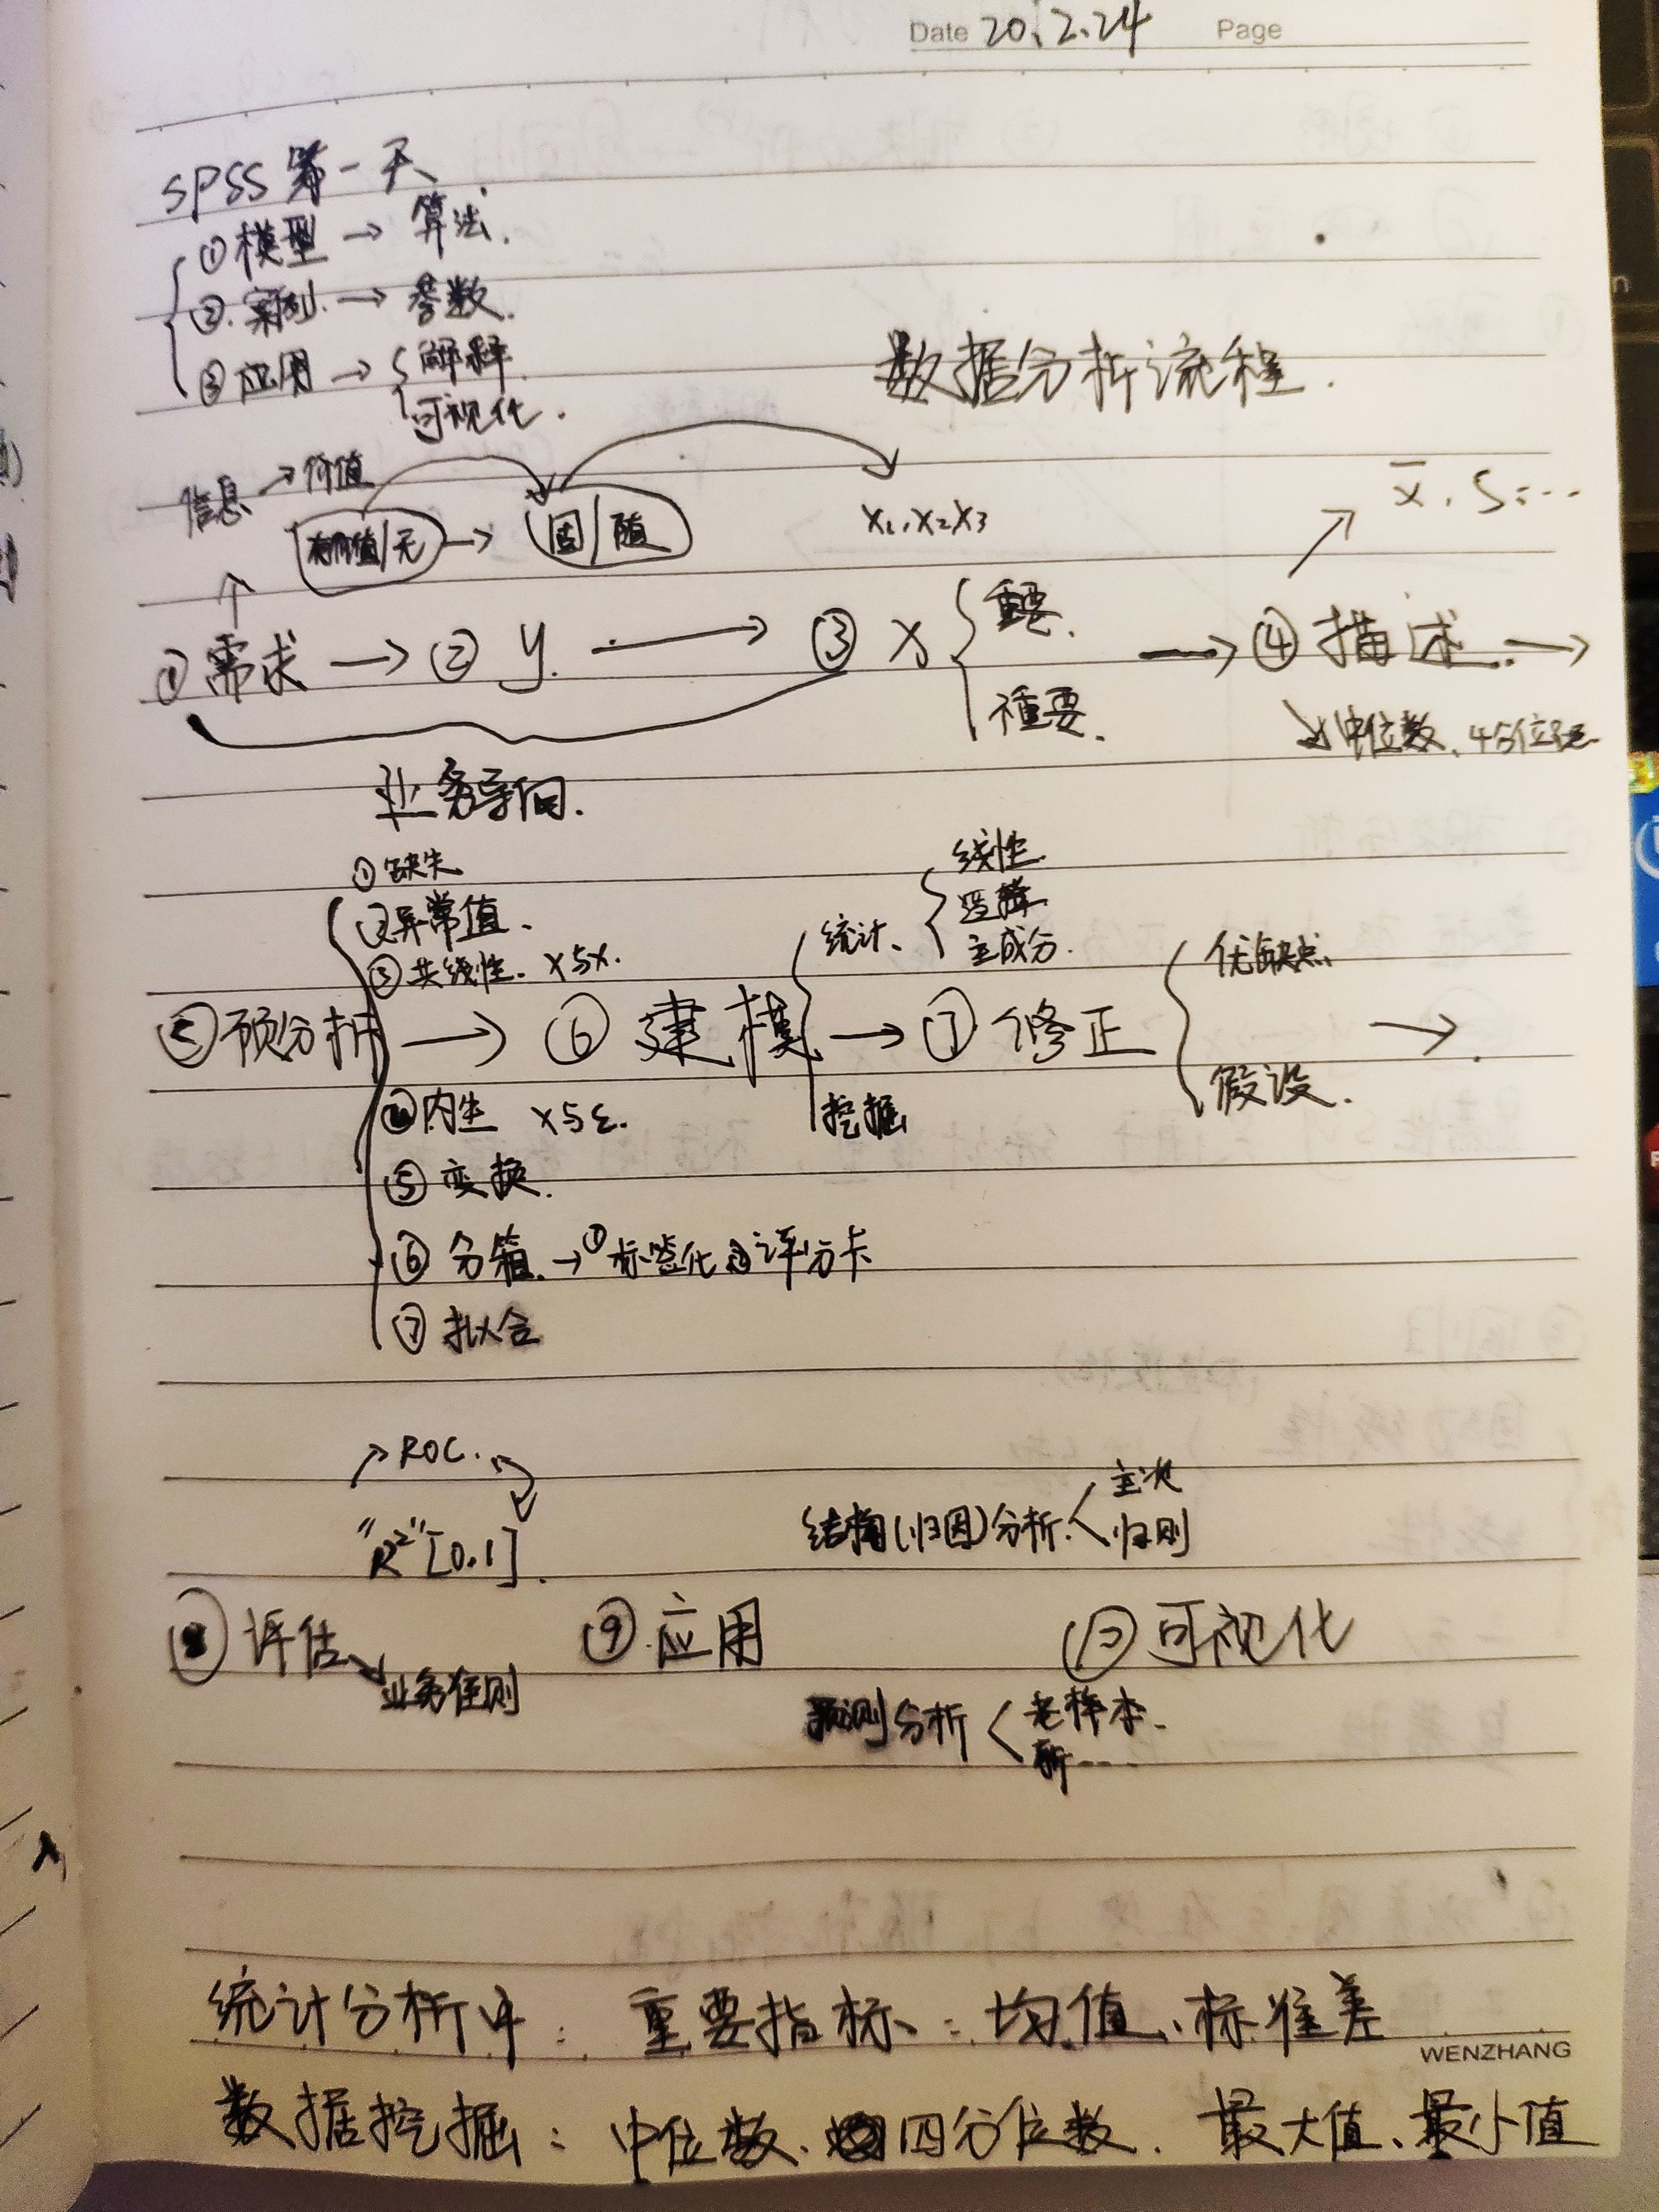 Date 20.2.24 Page
SPSS 第一天
①模型 → 算法.
②案例. → 参数.
③应用 → 解释.
可视化.
数据分析流程.
信息 → 价值
有价值/无 → 因/随
x₁,x₂x₃
x̄, S...
①需求 → ② y. → ③ x 重要. → ④描述. →
種要.
中位数, 4分位距.
业务导向.
①缺失
②异常值.
③共线性. x与x.
统计、
线性.
逻辑.
主成分.
优缺点
⑤预分析 → ⑥ 建模 → ⑦ 修正 →
④内生 x与ε.
挖掘
假设.
⑤变换.
⑥ 分箱. → ①标签化 ②评分卡
⑦ 拟合
ROC.
"R²"[0.1].
结构(归因)分析. 主次
归则
⑧ 评估 ⑨.应用 ⑩可视化
业务准则
预测分析 老样本.
新....
统计分析中: 重要指标: 均值、标准差
WENZHANG
数据挖掘: 中位数、四分位数. 最大值、最小值